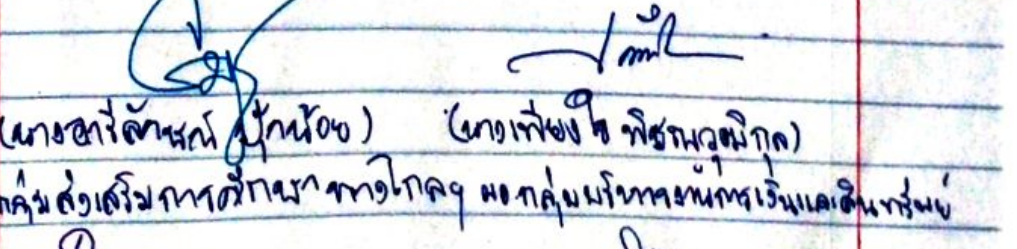 (นางอารีลักษณ์ ปุ๊กน้อย) (นางเพียงใจ พิชาณวุฒิกุล)
กลุ่มส่งเสริมการศึกษาทางไกลฯ ผอ.กลุ่มบริหารงานการเงินและสินทรัพย์